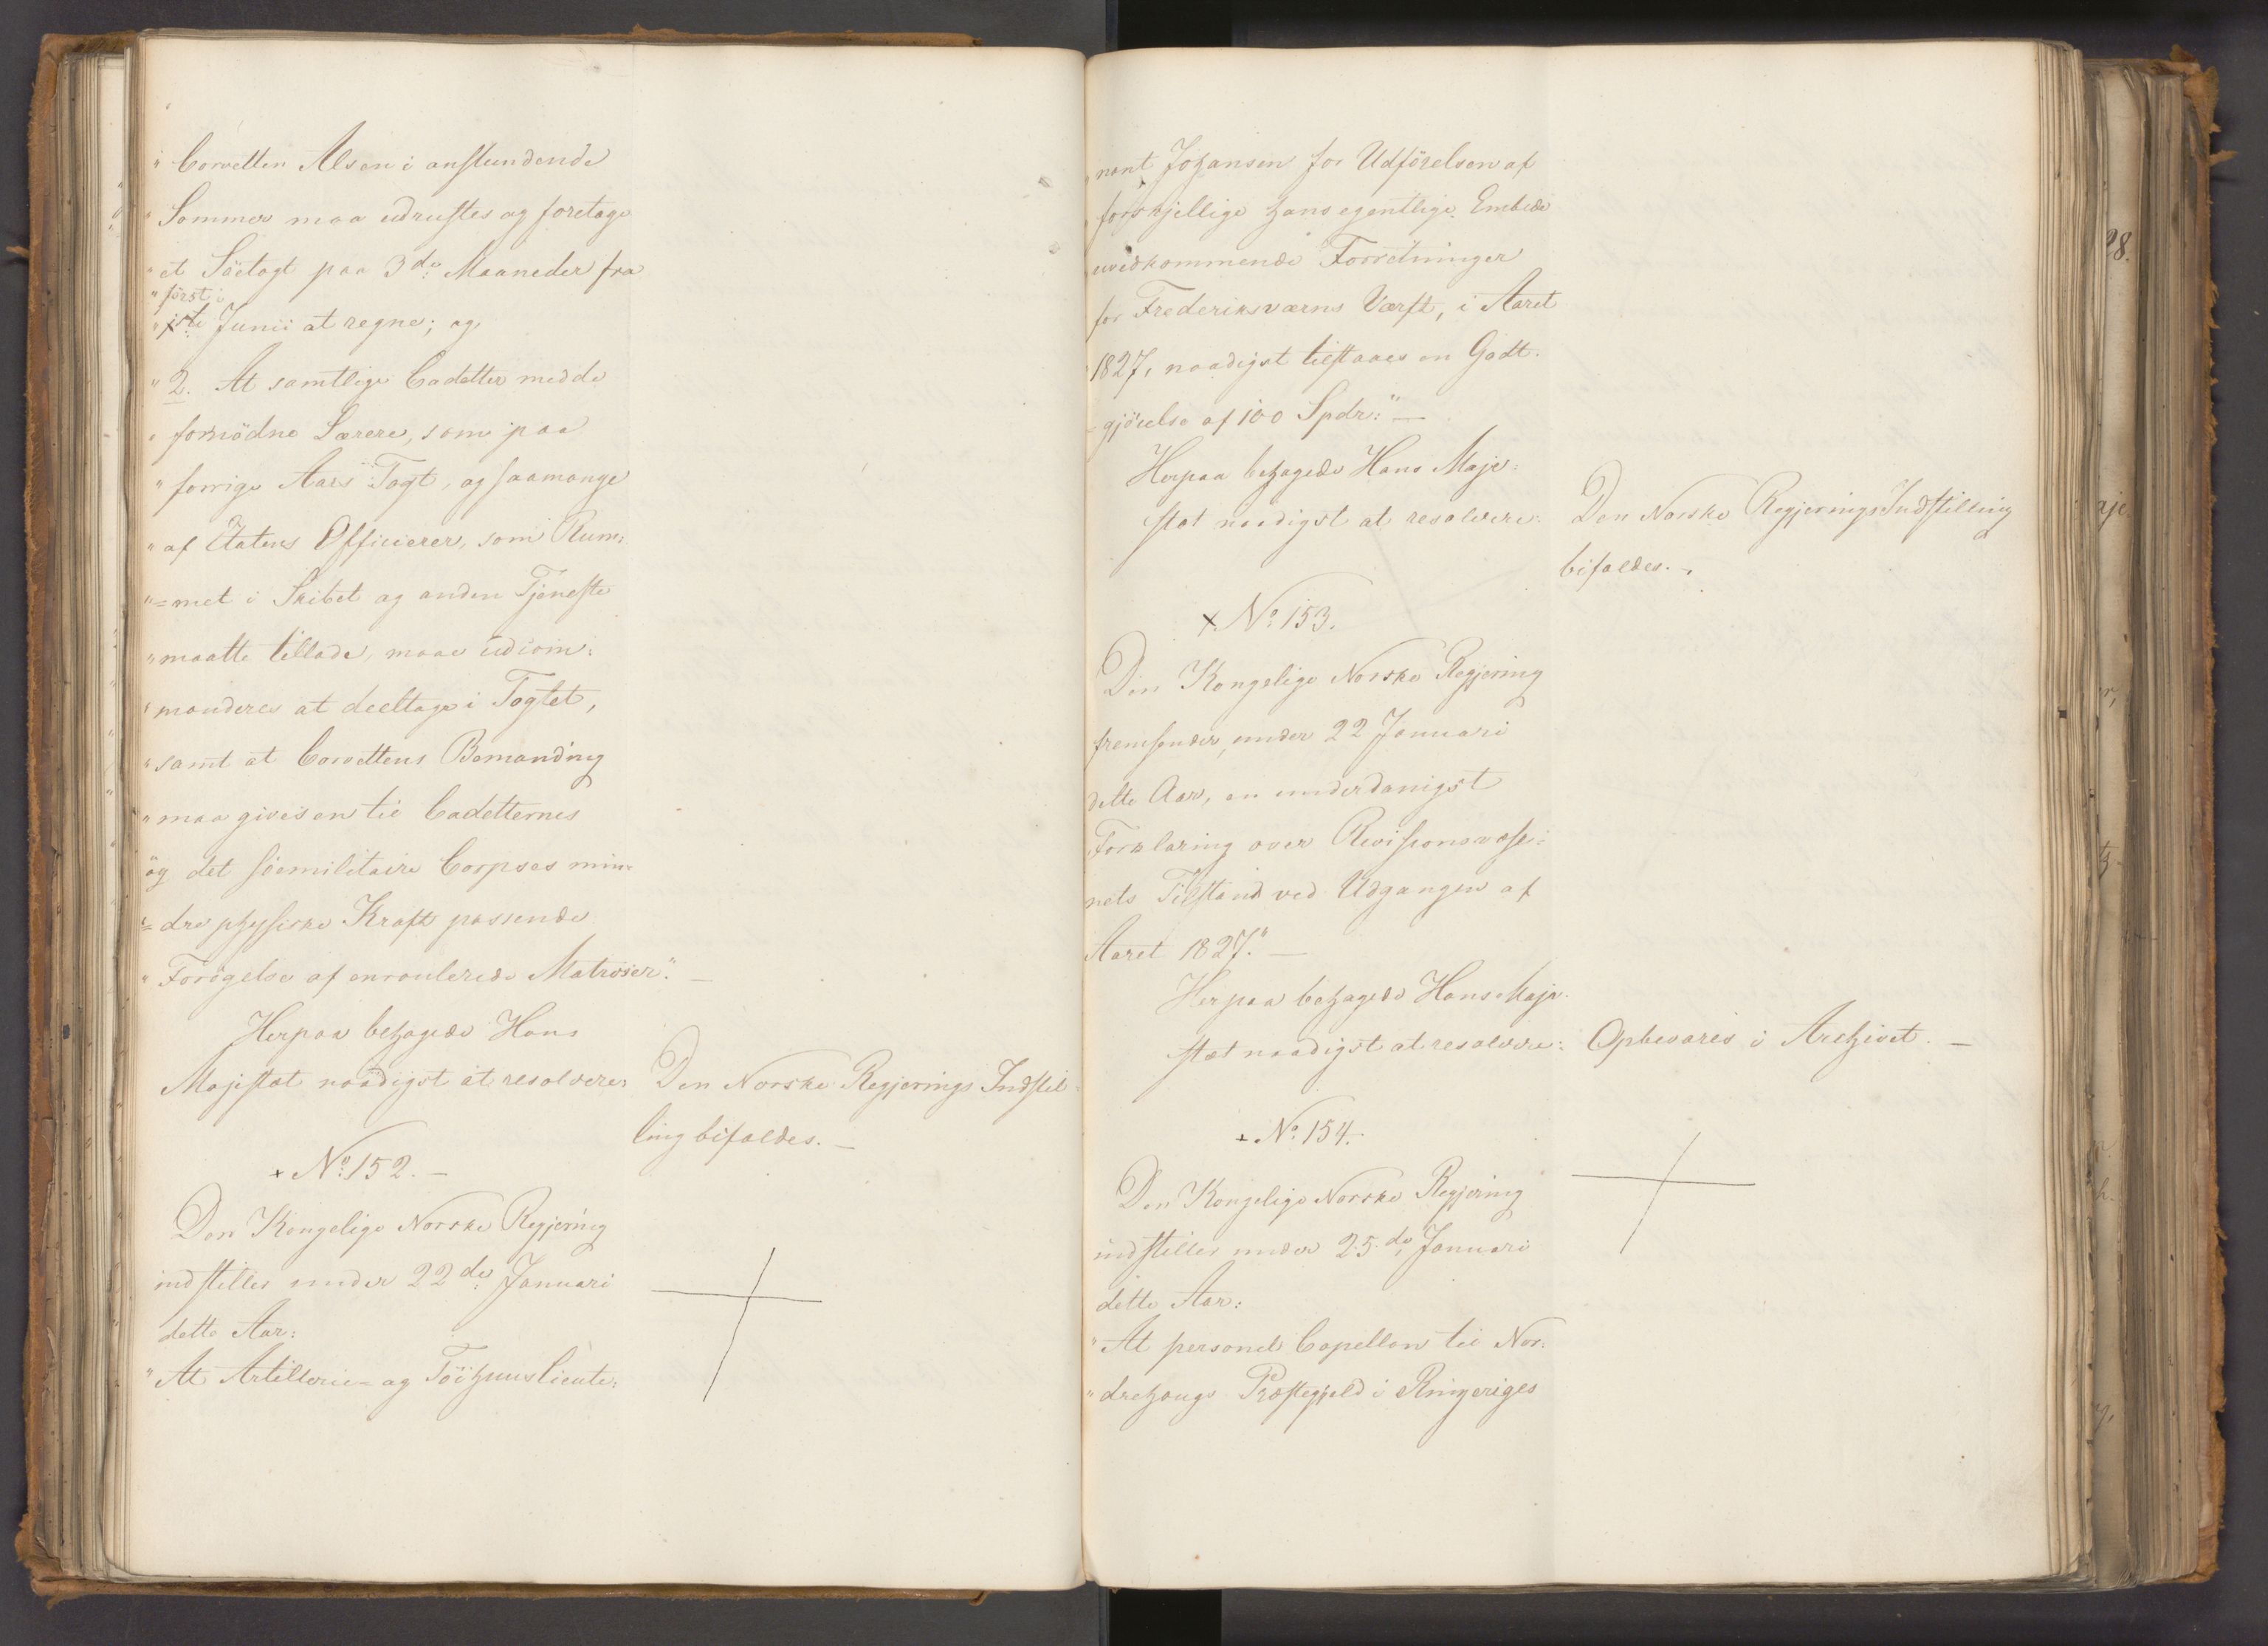 " Corvetten Alsen i anstundende
" Sommer maa udrustes og foretage
" et Söetogt paa 3de Maaneder fra
" först
" 1ste Junii at regne; og
" 2. At samtlige Cadetter med de
" fornödne Lærere, som paa
" forrige Aars Togt, og saamange
" af Etatens Officierer, som Rum=
"=met i Skibet og anden Tjeneste
" maatte tillade, maae udcom=
" manderes at deeltage i Togtet,
" samt at Corvettens Bemanding
" maa gives en til Cadetternes
" og det söemilitaire Corpses min=
"=dre physiske Kraft passende
" Forögelse af enroulerede Matroser." —
Herpaa behagede Hans
Majestæt naadigst at resolvere:
Den Norske Regjerings Indstil=
ling bifaldes. —
+ No 152. —
Den Kongelige Norske Regjering
indstiller under 22de Januari
dette Aar:
" At Artillerie- og Töihuuslieute=
" nant Johansen for Udförelsen af
" forskjellige hans egentlige Embede
" uvedkommende Forretninger
for Frederiksværns Værft, i Aaret
1827, naadigst tilstaaes en Godt=
=gjörelse af 100 Spdr:" —
Herpaa behagede Hans Maje=
stæt naadigst at resolvere:
Den Norske Regjerings Indstilling
bifaldes. —
+ No 153.
Den Kongelige Norske Regjering
fremsender, under 22 Januari
dette Aar, en underdanigst
Forklaring over Revisionsvæse=
nets Tilstand ved Udgangen af
Aaret 1827." —
Herpaa behagede Hans Maje=
stæt naadigst at resolvere:
Opbevares i Archivet. —
+ No 154.
Den Kongelige Norske Regjering
indstiller under 25de Januari
dette Aar:
" At personel Capellan til Nor=
" drehougs Præstegjeld i Ringeriges
28.